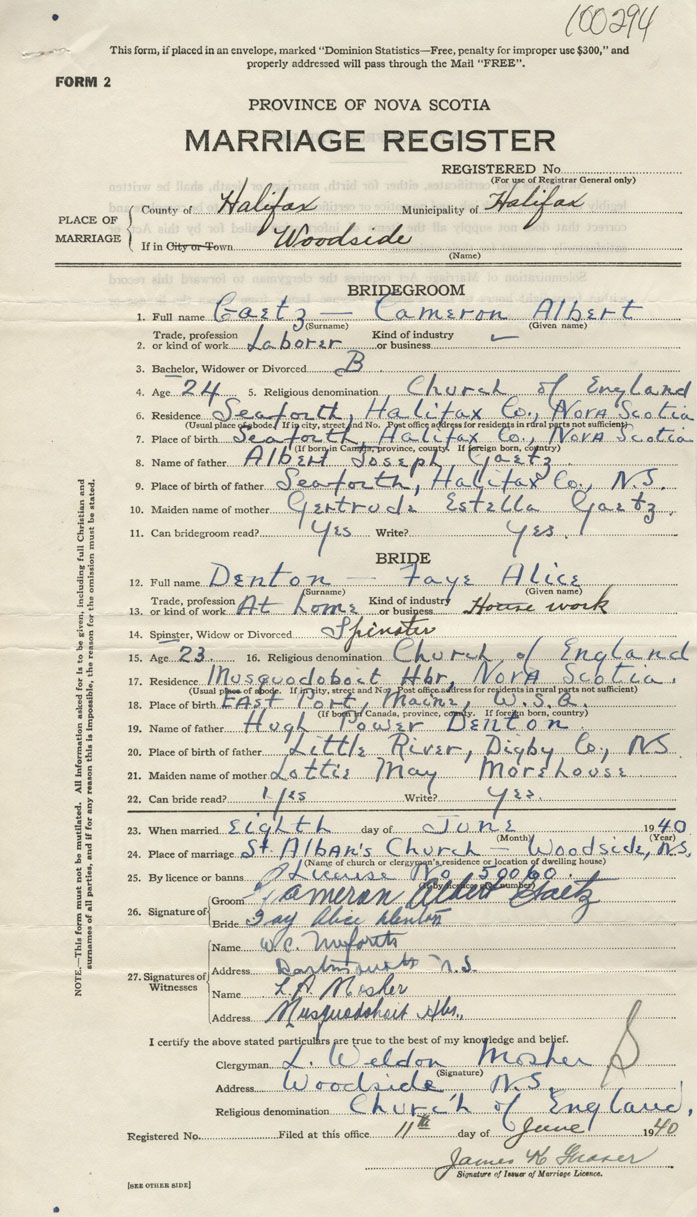 100294
This form, if placed in an envelope, marked "Dominion Statistics—Free, penalty for improper use $300," and
properly addressed will pass through the Mail "FREE".
FORM 2
PROVINCE OF NOVA SCOTIA
MARRIAGE REGISTER
REGISTERED No.
(For use of Registrar General only)
PLACE OF MARRIAGE
County of Halifax Municipality of Halifax
If in City or Town Woodside
(Name)
BRIDEGROOM
1. Full name Gaetz — Cameron Albert
(Surname) (Given name)
2. Trade, profession or kind of work Laborer Kind of industry or business ✓
3. Bachelor, Widower or Divorced B
4. Age 24 5. Religious denomination Church of England
6. Residence Seaforth, Halifax Co., Nova Scotia
(Usual place of abode. If in city, street and No. Post office address for residents in rural parts not sufficient)
7. Place of birth Seaforth, Halifax Co., Nova Scotia
(If born in Canada, province, county. If foreign born, country)
8. Name of father Albert Joseph Gaetz
9. Place of birth of father Seaforth, Halifax Co., N.S.
10. Maiden name of mother Gertrude Estella Gaetz
11. Can bridegroom read? Yes Write? Yes.
BRIDE
12. Full name Denton — Faye Alice
(Surname) (Given name)
13. Trade, profession or kind of work At home Kind of industry or business House work
14. Spinster, Widow or Divorced Spinster
15. Age 23 16. Religious denomination Church of England
17. Residence Musquodoboit Hbr, Nova Scotia.
(Usual place of abode. If in city, street and No. Post office address for residents in rural parts not sufficient)
18. Place of birth East Port, Maine, U.S.A.
(If born in Canada, province, county. If foreign born, country)
19. Name of father Hugh Power Denton
20. Place of birth of father Little River, Digby Co, N.S
21. Maiden name of mother Lottie May Morehouse
22. Can bride read? Yes Write? Yes.
23. When married Eighth day of June 1940
(Month) (Year)
24. Place of marriage St Alban's Church — Woodside, N.S.
(Name of church or clergyman's residence or location of dwelling house)
25. By licence or banns License No 50060.
26. Signature of
Groom Cameron Albert Gaetz
Bride Fay Alice Denton
27. Signatures of Witnesses
Name W.C.
Address Dartmouth N.S.
Name L.P. Mosher
Address Musquodoboit Hbr.,
I certify the above stated particulars are true to the best of my knowledge and belief.
Clergyman L. Weldon Mosher
(Signature)
Address Woodside N.S.
Religious denomination Church of England.
Registered No. Filed at this office 11th day of June 1940
James K Fraser
Signature of Issuer of Marriage Licence.
[SEE OTHER SIDE]
NOTE.—This form must not be mutilated. All information asked for is to be given, including full Christian and
surnames of all parties, and if for any reason this is impossible, the reason for the omission must be stated.